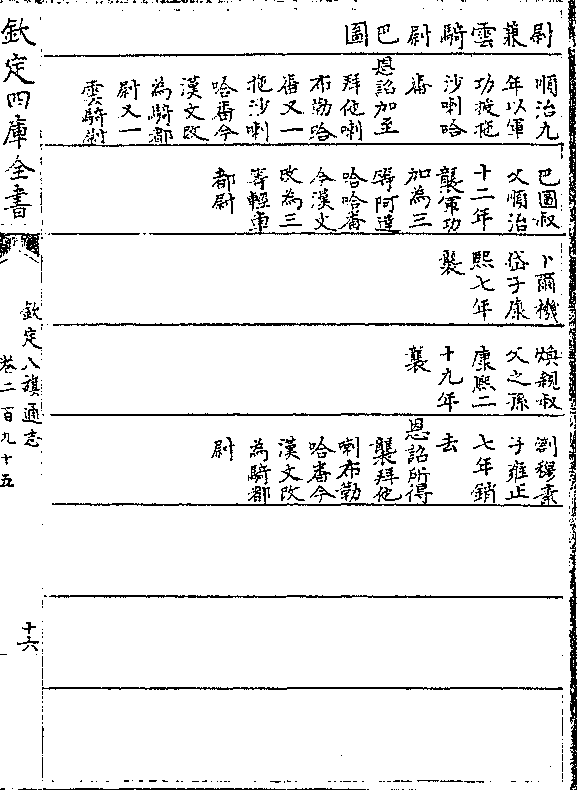 尉兼雲騎尉巴圖
順治九
年以軍
功授拖
沙喇哈
番
恩詔加至
拜他喇
布勒哈
番又一
拖沙喇
哈番今
漢文改
為騎都
尉又一
雲騎尉
巴圖叔
父順治
十二年
襲軍功
加為三
等阿達
哈哈番
今漢文
改為三
等輕車
都尉
卜爾機
岱子康
熙七年
襲
煥親叔
父之孫
康熙二
十九年
襲
劄穆素
子雍正
七年銷
去
恩詔所得
襲拜他
喇布勒
哈番今
漢文改
為騎都
尉
欽定四庫全書
欽定八旗通志
卷二百九十五
十六